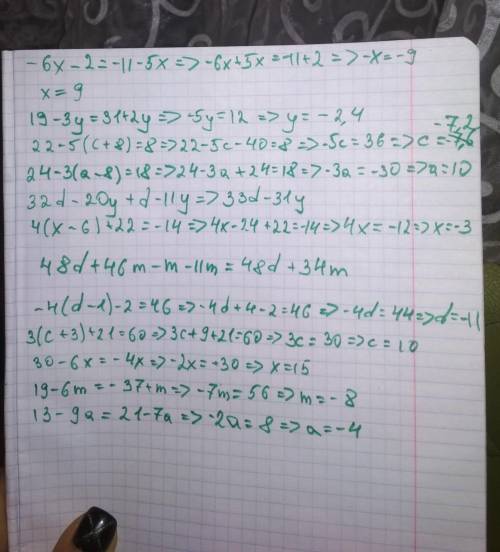 -6x-2=-11-5x=>-6x+5x=-11+2=>-x=-9
x=9
19-3y=31+2y=>-5y=12=>y=-2,4
-7,2
22-5(c+8)=8=>22-5c-40=8=>-5c=36=>c=
24-3(a-8)=18=>24-3a+24=18=>-3a=-30=>a=10
32d-20y+d-11y=>33d-31y
4(x-6)+22=-14=>4x-24+22=-14=>4x=-12=>x=-3
48d+46m-m-11m=48d+34m
-4(d-1)-2=46=>-4d+4-2=46=>-4d=44=>d=-11
3(c+3)+21=60=>3c+9+21=60=>3c=30=>c=10
30-6x=-4x=>-2x=-30=>x=15
19-6m=-37+m=>-7m=56=>m=-8
13-9a=21-7a=>-2a=8=>a=-4